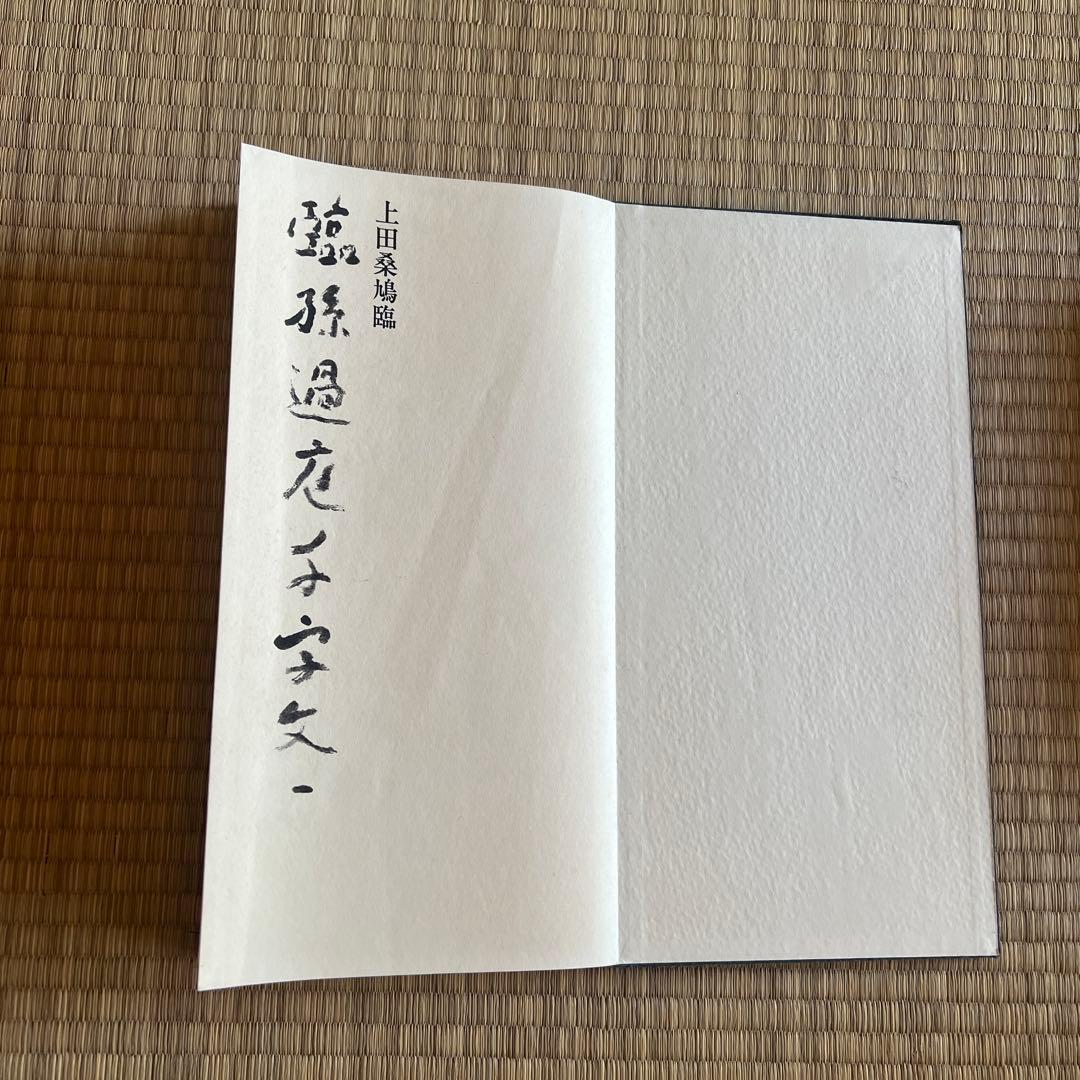 上田桑鳩臨
臨孫過庭千字文一